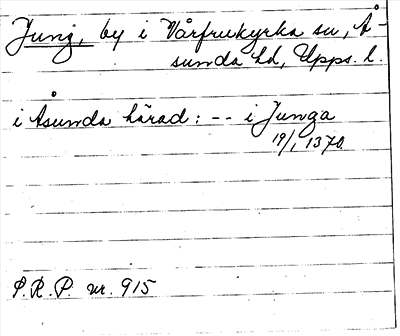 Jung, by i Vårfrukyrka sn, Å-
sunda hd, Upps. l.
i Åsunda härad: -- i Junga
19/1 1370
P.R.P. nr. 915